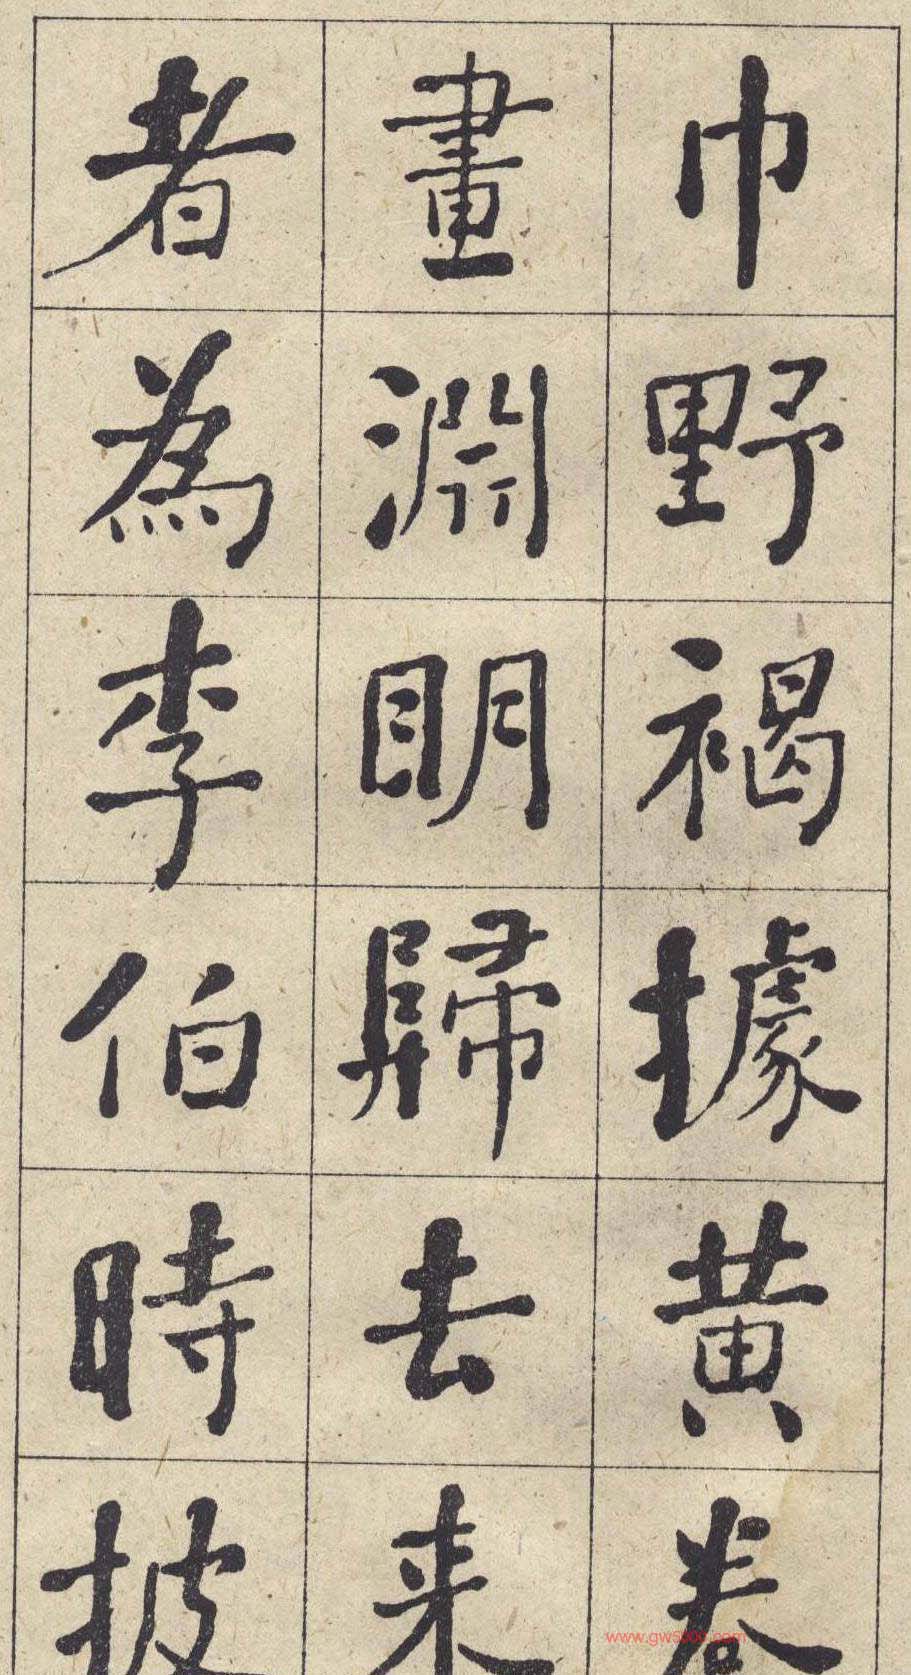 巾野褐據黃卷
畫淵明歸去来
者為李伯時披
www.gw5000.com